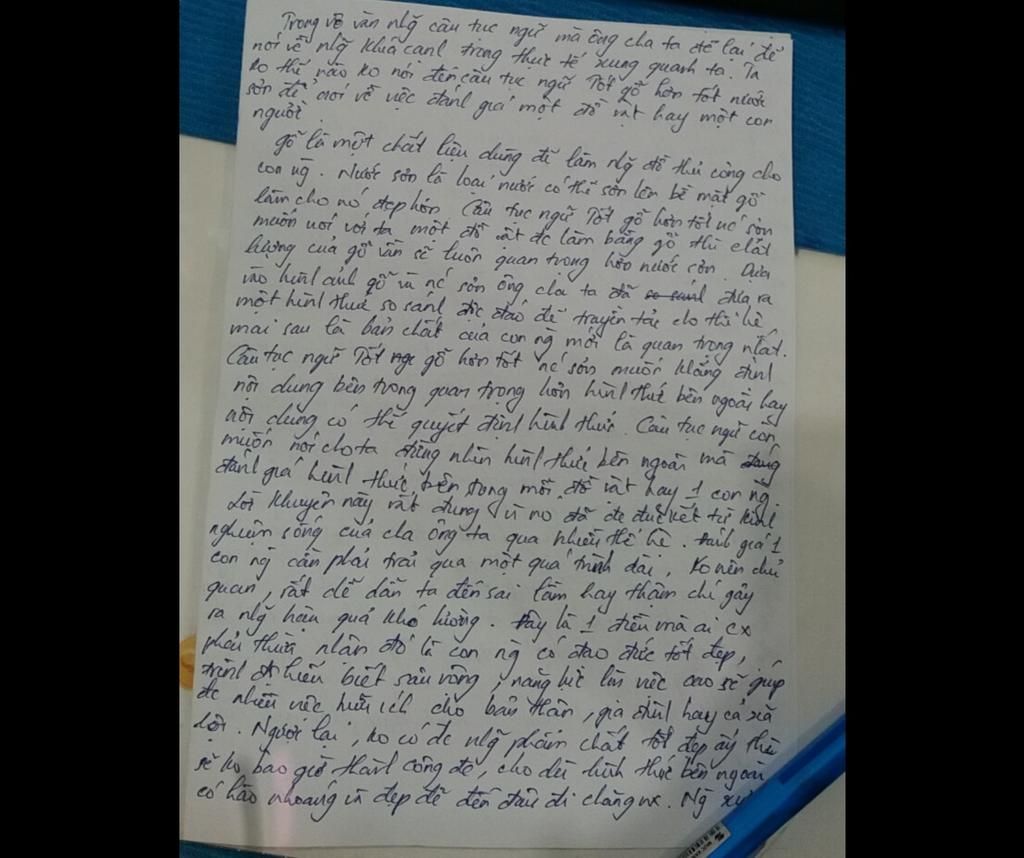 Trong vô vàn nhg câu tục ngữ mà ông cha ta để lại để
nói về nhg khía cạnh trong thực tế xung quanh ta. Ta
ko thể nào ko nói đến câu tục ngữ Tốt gỗ hơn tốt nước
sơn để nói về việc đánh giá một đồ vật hay một con
người.
gỗ là một chất liệu dùng để làm nhg đồ thủ công cho
con ng. Nước sơn là loại nước có thể sơn lên bề mặt gỗ
làm cho nó đẹp hơn. Câu tục ngữ Tốt gỗ hơn tốt nc sơn
muốn nói với ta một đồ vật đc làm bằng gỗ thì chất
lượng của gỗ vẫn sẽ luôn quan trọng hơn nước sơn. Dựa
vào hình ảnh gỗ và nc sơn ông cha ta đã so sánh đưa ra
một hình thức so sánh độc đáo để truyền tải cho thế hệ
mai sau là bản chất của con ng mới là quan trọng nhất.
Câu tục ngữ Tốt gỗ hơn tốt nc sơn muốn khẳng định
nội dung bên trong quan trọng hơn hình thức bên ngoài hay
nội dung có thể quyết định hình thức. Câu tục ngữ còn
muốn nói cho ta đừng nhìn hình thức bên ngoài mà
đánh giá hình thức bên trong mỗi đồ vật hay 1 con ng.
Lời khuyên này rất đúng vì nó đã đc đúc kết từ kinh
nghiệm sống của cha ông ta qua nhiều thế hệ. Đánh giá 1
con ng cần phải trải qua một quá trình dài, ko nên chủ
quan, rất dễ dẫn ta đến sai lầm hay thậm chí gây
ra nhg hậu quả khó lường. Đây là 1 điều mà ai cx
phải thừa nhận đó là con ng có đạo đức tốt đẹp,
trình độ hiểu biết sâu rộng, năng lực làm việc cao sẽ giúp
đc nhiều việc hữu ích cho bản thân, gia đình hay cả xã
hội. Ngược lại, ko có đc nhg phẩm chất tốt đẹp ấy thì
sẽ ko bao giờ thành công đc, cho dù hình thức bên ngoài
có hào nhoáng và đẹp đẽ đến đâu đi chăng nx. Ng